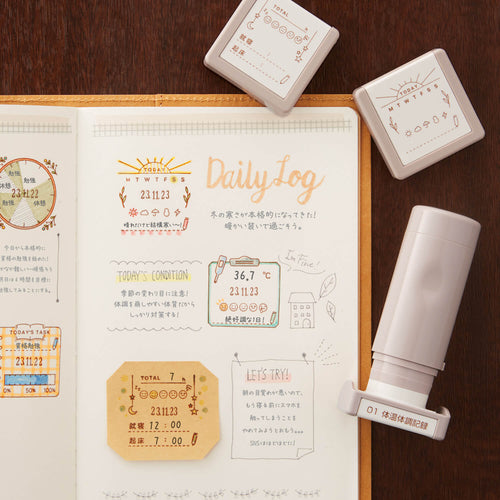 TOTAL
就寝
起床
TODAY
M T W T F S S
TODAY
M T W T F S S
23.11.23
晴れだけど結構寒い〜
Daily Log
冬の寒さが本格的になってきた!
暖かい装いで過ごそう。
I'm Fine!
TODAY'S CONDITION
季節の変わり目に注意!
体調を崩しやすい体質だから
しっかり対策する!
36.7 ℃
23.11.23
絶好調な1日!
TOTAL 7 h
23.11.23
就寝 12:00
起床 7:00
LET'S TRY!
朝の目覚めが悪いので、
もう寝る前にスマホを
触ってしまうことを
やめてみようとおもう。。。
SNSはほどほどに!
01 体温体調記録
勉強
休憩
23.11.23
勉強
休憩
今日から本格的に
資格の勉強を始めた!
TODAY'S TASK
資格勉強
23.11.22
0% 50% 100%